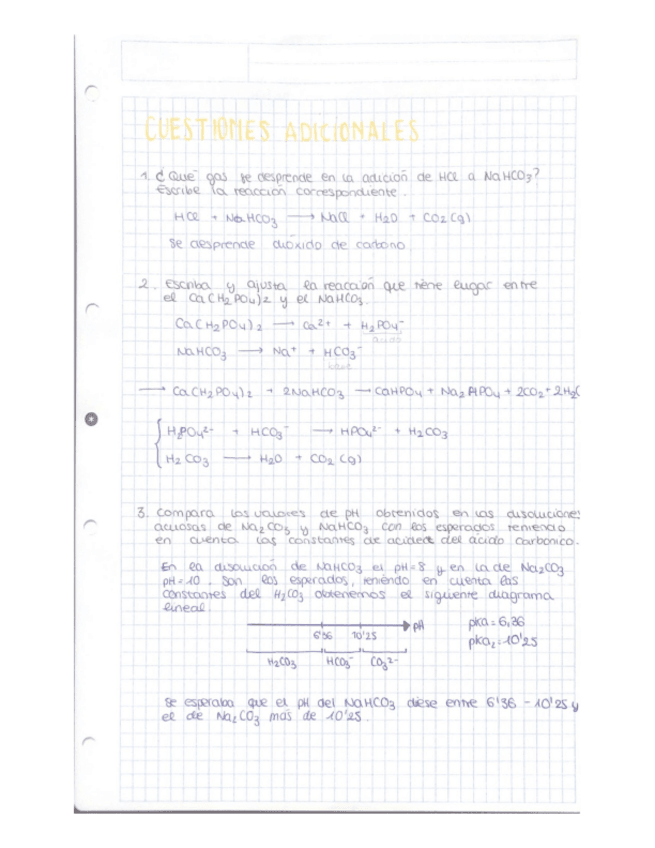 CUESTIONES ADICIONALES
1. ¿Qué gas se desprende en la adición de HCl a NaHCO3?
Escribe la reacción correspondiente.
HCl + NaHCO3 → NaCl + H2O + CO2(g)
Se desprende dióxido de carbono
2. Escriba y ajusta la reacción que tiene lugar entre
el Ca(H2PO4)2 y el NaHCO3.
Ca(H2PO4)2 → Ca2+ + H2PO4-
ácido
NaHCO3 → Na+ + HCO3-
base
→ Ca(H2PO4)2 + 2NaHCO3 → CaHPO4 + Na2HPO4 + 2CO2 + 2H2O
H2PO4 2- + HCO3- → HPO4 2- + H2CO3
H2CO3 → H2O + CO2(g)
3. Compara los valores de pH obtenidos en las disoluciones
acuosas de Na2CO3 y NaHCO3 con los esperados teniendo
en cuenta las constantes de acidez del ácido carbónico.
En la disolución de NaHCO3 el pH=8 y en la de Na2CO3
pH=10. Son los esperados, teniendo en cuenta las
constantes del H2CO3 obtenemos el siguiente diagrama
lineal.
pH
pKa = 6,36
6'36 10'25
pKa2 = 10'25
H2CO3 HCO3- CO3 2-
Se esperaba que el pH del NaHCO3 diese entre 6'36 - 10'25 y
el de Na2CO3 más de 10'25.